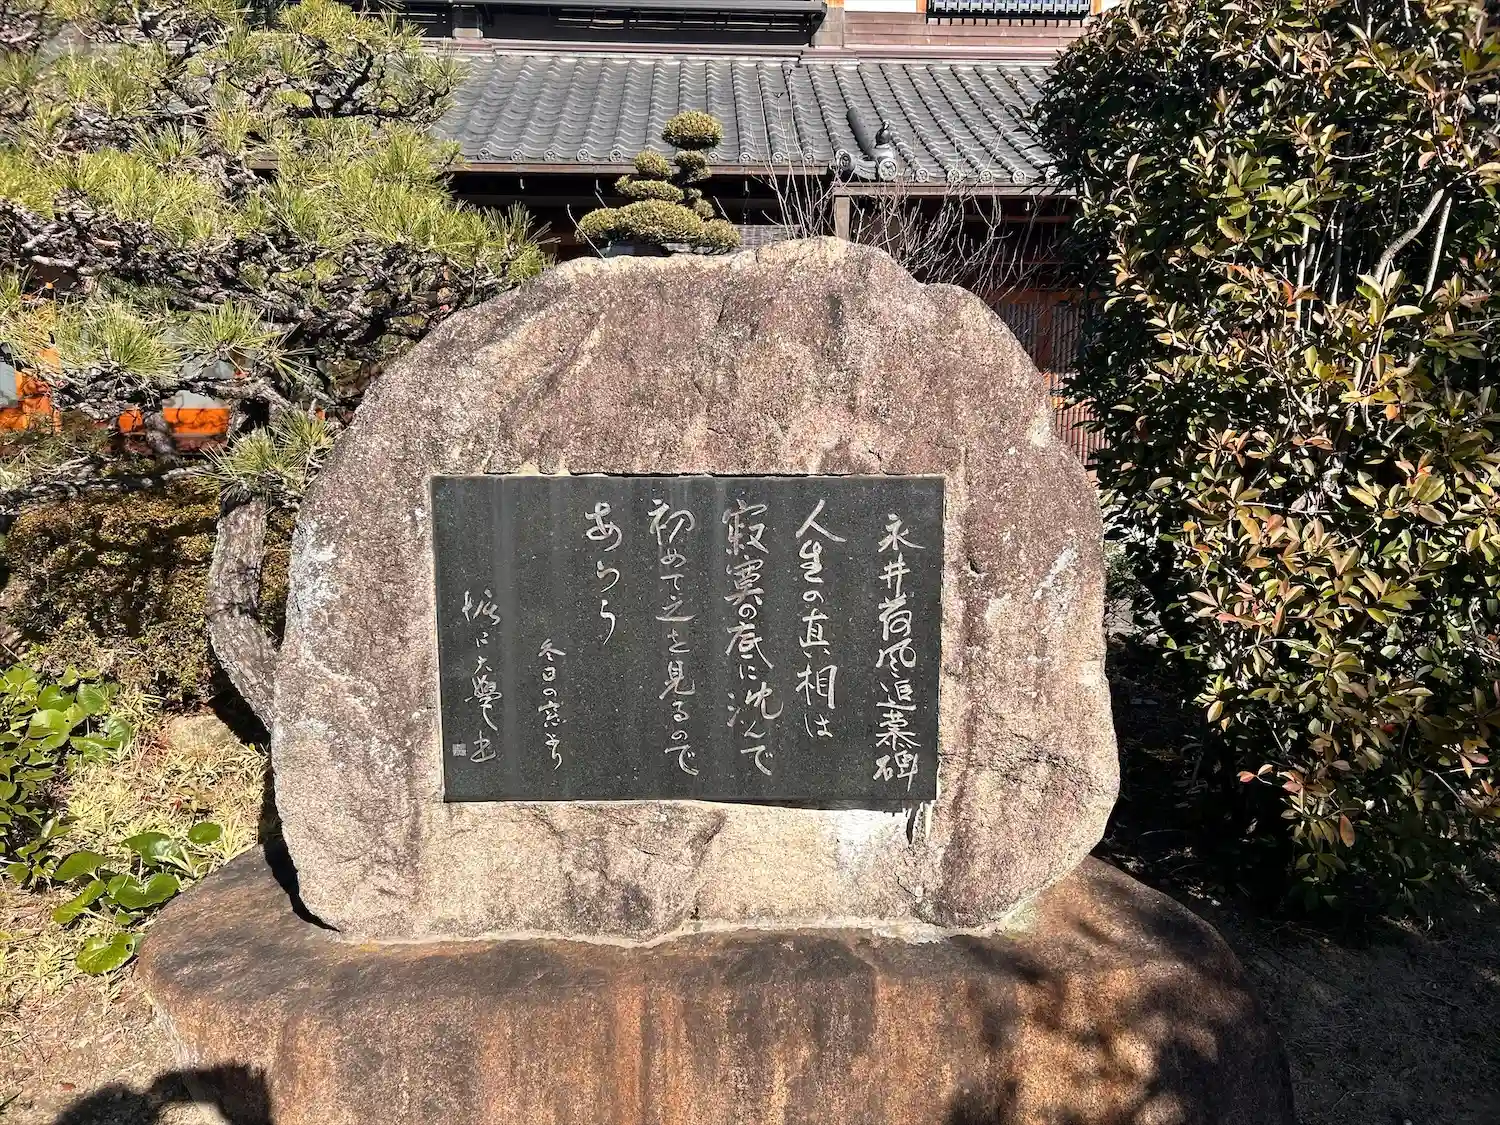 永井荷風追慕碑
人生の真相は
寂寞の底に沈んで
初めて之を見るので
あらう
冬日の窓より
堀口大學書